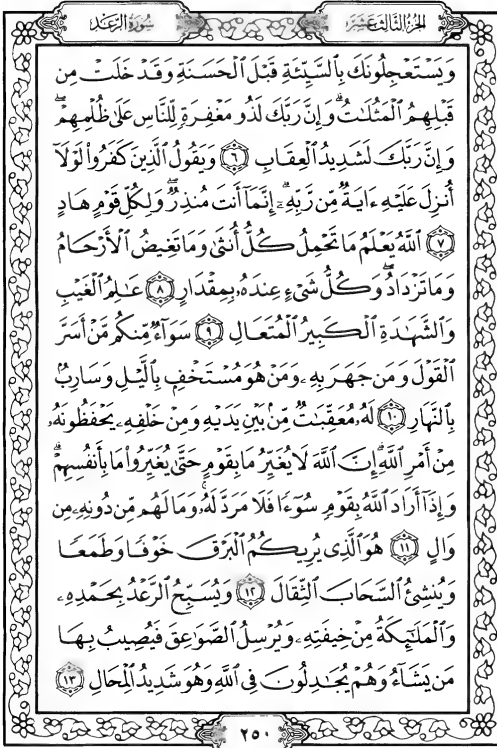 الجزء الثالث عشر
سورة الرعد
وَيَسْتَعْجِلُونَكَ بِالسَّيِّئَةِ قَبْلَ الْحَسَنَةِ وَقَدْ خَلَتْ مِن
قَبْلِهِمُ الْمَثُلَاتُ ۗ وَإِنَّ رَبَّكَ لَذُو مَغْفِرَةٍ لِّلنَّاسِ عَلَىٰ ظُلْمِهِمْ ۖ
وَإِنَّ رَبَّكَ لَشَدِيدُ الْعِقَابِ ٦ وَيَقُولُ الَّذِينَ كَفَرُوا لَوْلَا
أُنزِلَ عَلَيْهِ ءَايَةٌ مِّن رَّبِّهِ ۗ إِنَّمَا أَنتَ مُنذِرٌ ۖ وَلِكُلِّ قَوْمٍ هَادٍ
٧ اللَّهُ يَعْلَمُ مَا تَحْمِلُ كُلُّ أُنثَىٰ وَمَا تَغِيضُ الْأَرْحَامُ
وَمَا تَزْدَادُ ۖ وَكُلُّ شَيْءٍ عِندَهُ بِمِقْدَارٍ ٨ عَالِمُ الْغَيْبِ
وَالشَّهَادَةِ الْكَبِيرُ الْمُتَعَالِ ٩ سَوَاءٌ مِّنكُم مَّنْ أَسَرَّ
الْقَوْلَ وَمَن جَهَرَ بِهِ وَمَنْ هُوَ مُسْتَخْفٍ بِالَّيْلِ وَسَارِبٌ
بِالنَّهَارِ ١٠ لَهُ مُعَقِّبَاتٌ مِّن بَيْنِ يَدَيْهِ وَمِنْ خَلْفِهِ يَحْفَظُونَهُ
مِنْ أَمْرِ اللَّهِ ۗ إِنَّ اللَّهَ لَا يُغَيِّرُ مَا بِقَوْمٍ حَتَّىٰ يُغَيِّرُوا مَا بِأَنفُسِهِمْ ۗ
وَإِذَا أَرَادَ اللَّهُ بِقَوْمٍ سُوءًا فَلَا مَرَدَّ لَهُ ۚ وَمَا لَهُم مِّن دُونِهِ مِن
وَالٍ ١١ هُوَ الَّذِي يُرِيكُمُ الْبَرْقَ خَوْفًا وَطَمَعًا
وَيُنشِئُ السَّحَابَ الثِّقَالَ ١٢ وَيُسَبِّحُ الرَّعْدُ بِحَمْدِهِ
وَالْمَلَٰئِكَةُ مِنْ خِيفَتِهِ وَيُرْسِلُ الصَّوَاعِقَ فَيُصِيبُ بِهَا
مَن يَشَاءُ وَهُمْ يُجَادِلُونَ فِي اللَّهِ وَهُوَ شَدِيدُ الْمِحَالِ ١٣
٢٥٠